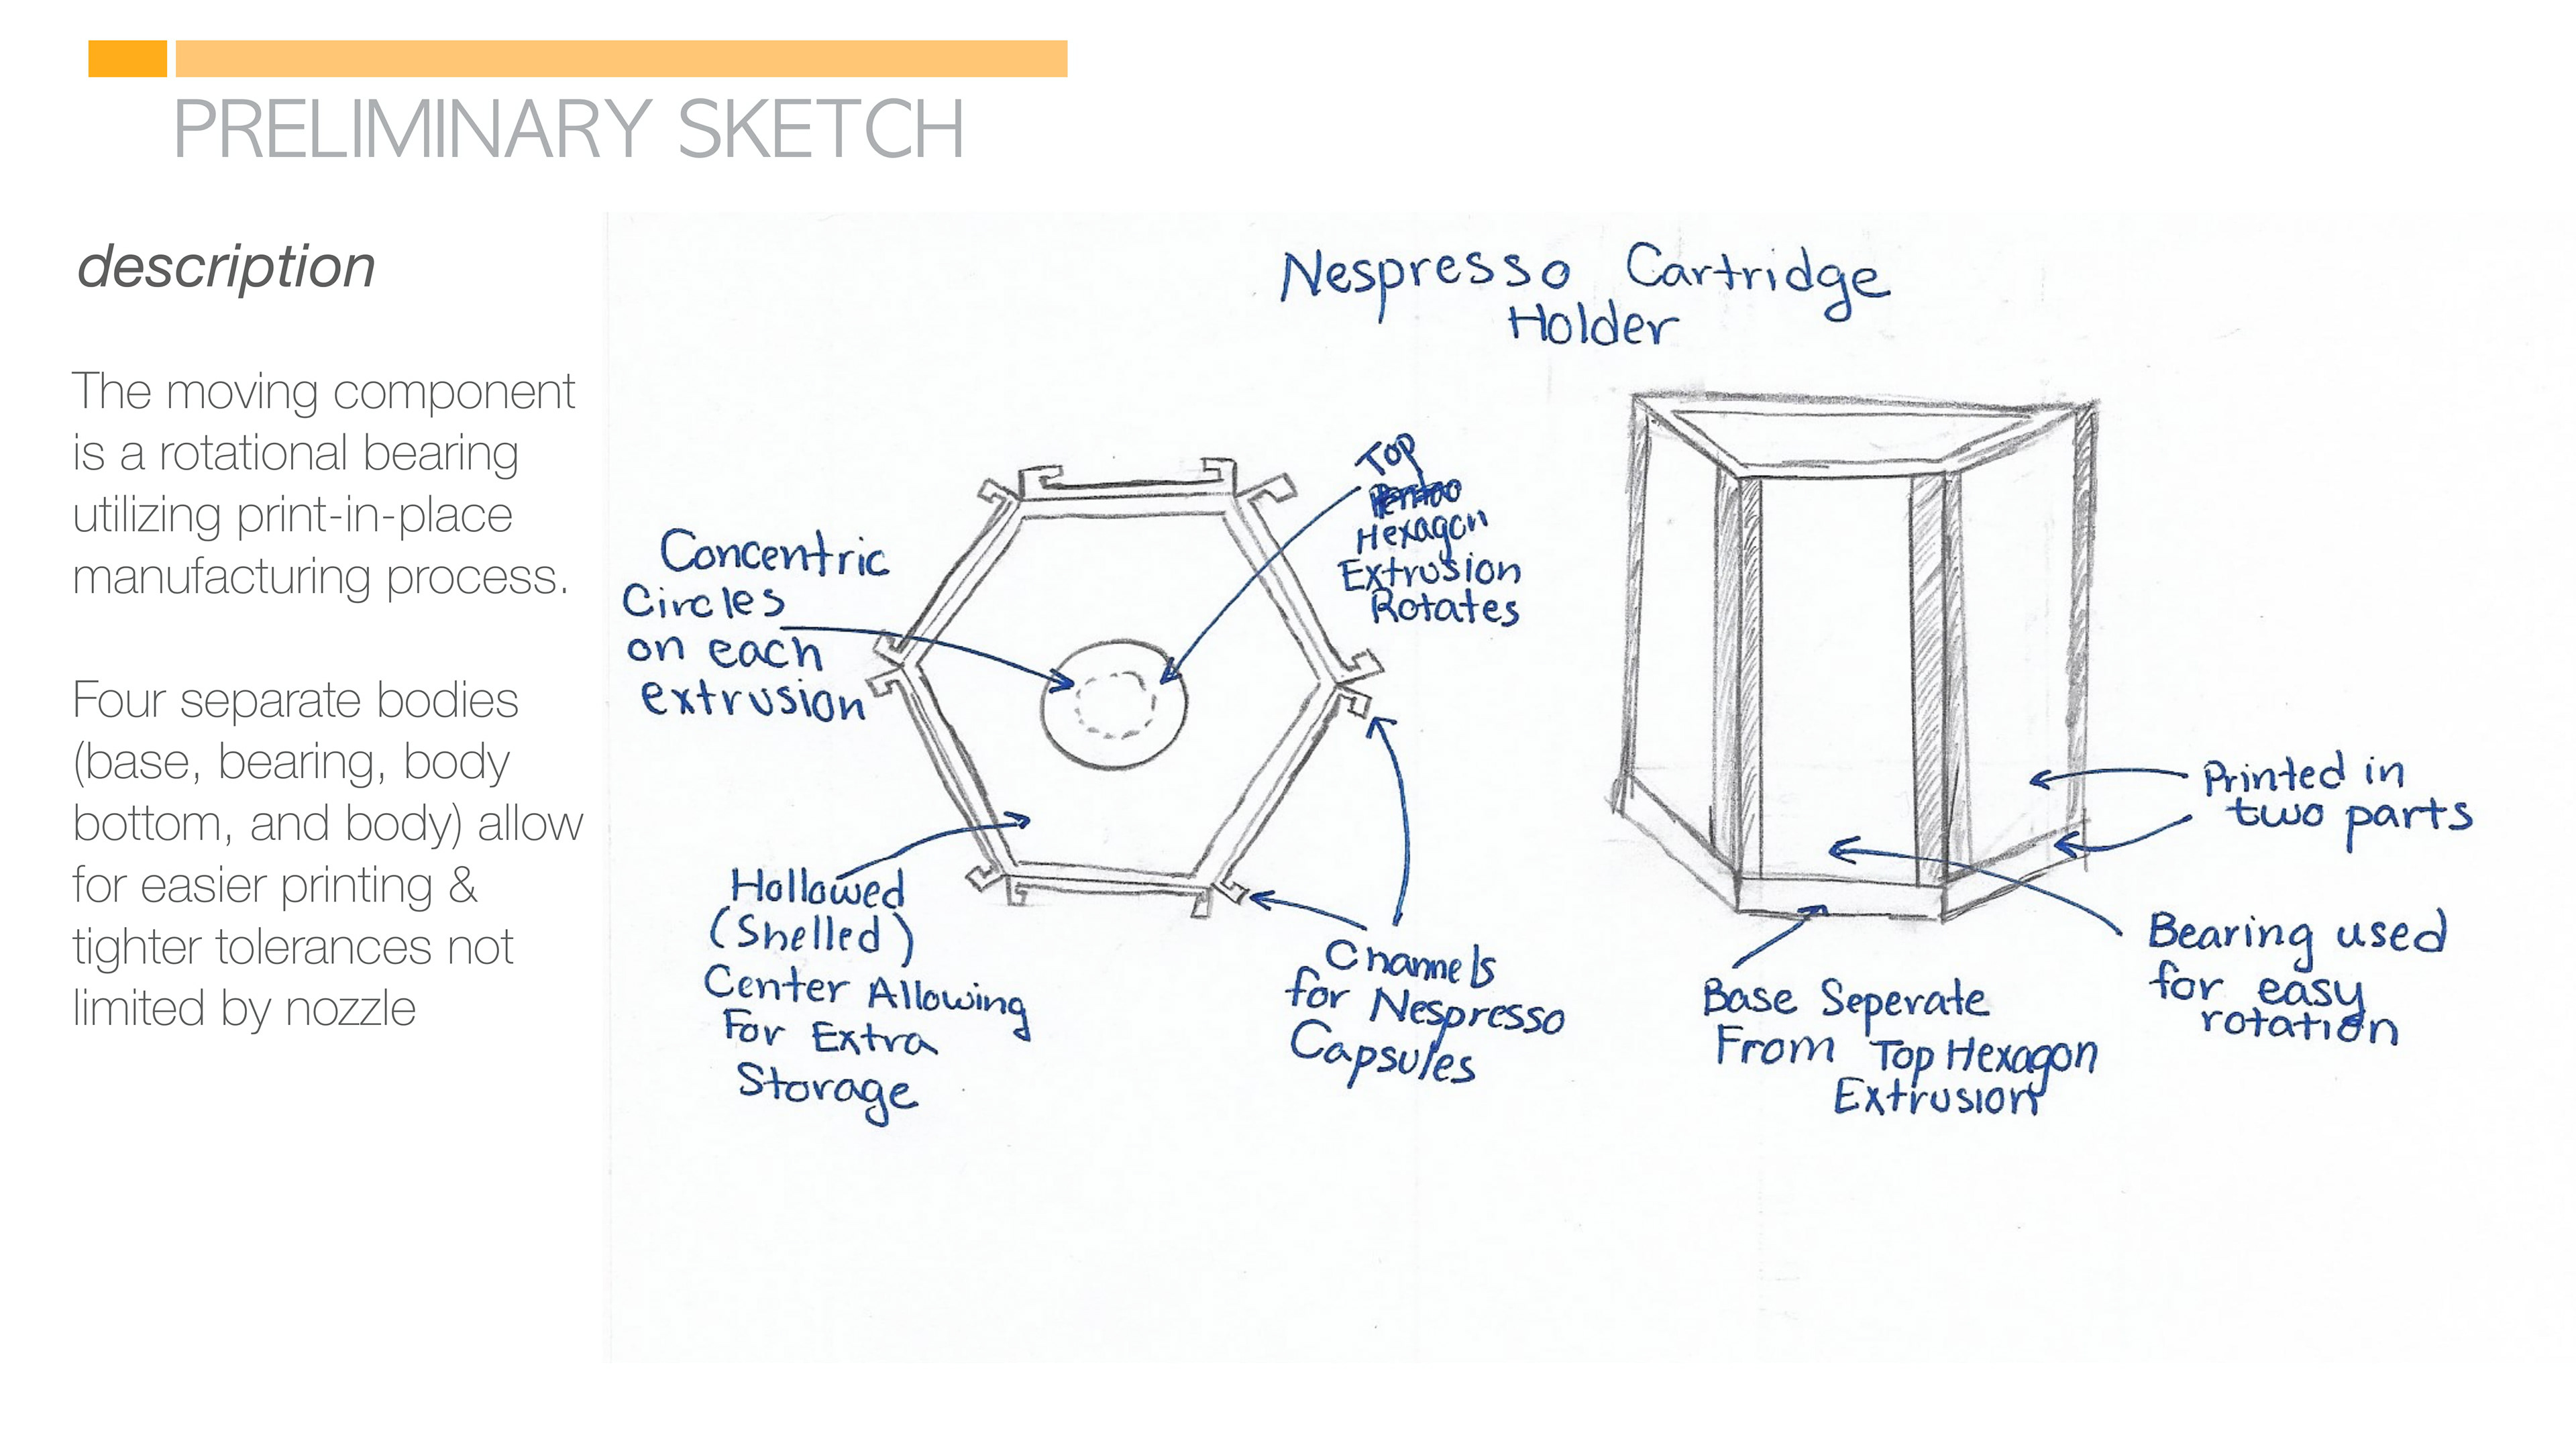 PRELIMINARY SKETCH
description
The moving component
is a rotational bearing
utilizing print-in-place
manufacturing process.
Four separate bodies
(base, bearing, body
bottom, and body) allow
for easier printing &
tighter tolerances not
limited by nozzle
Nespresso Cartridge
Holder
Concentric
Circles
on each
extrusion
Top
Hexagon
Extrusion
Rotates
Hollowed
(Shelled)
Center Allowing
For Extra
Storage
Channels
for Nespresso
Capsules
Printed in
two parts
Bearing used
for easy
rotation
Base Seperate
From Top Hexagon
Extrusion